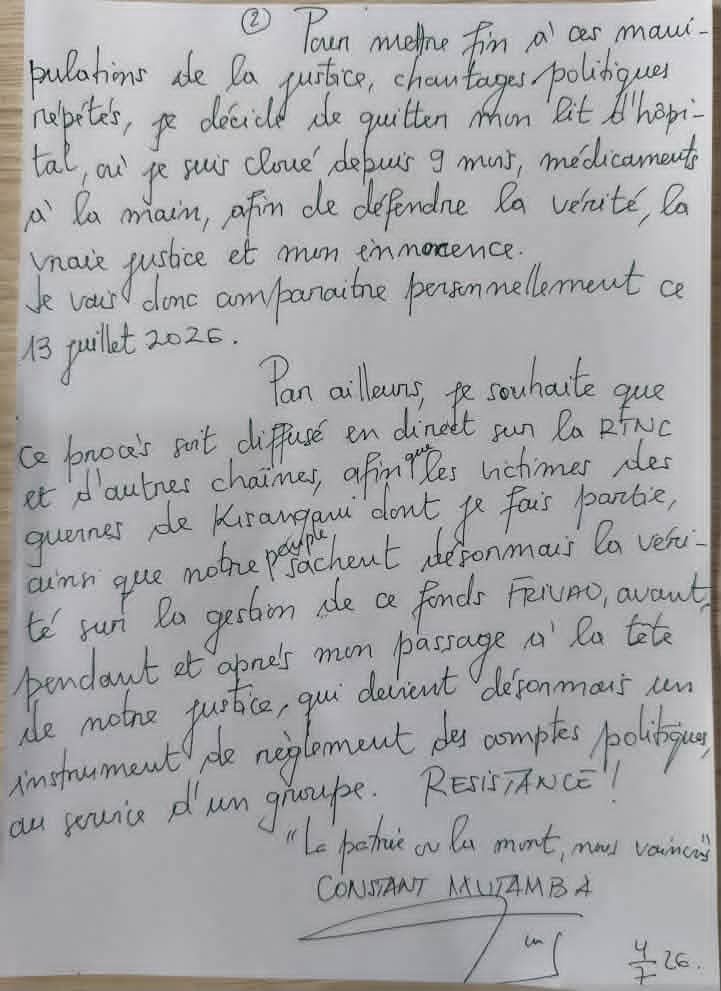 ② Pour mettre fin à ces mani-
pulations de la justice, chantages politiques
répétés, je décide de quitter mon lit d'hôpi-
tal, où je suis cloué depuis 9 mois, médicaments
à la main, afin de défendre la vérité, la
vraie justice et mon innocence.
Je vais donc comparaitre personnellement ce
13 juillet 2026.
Par ailleurs, je souhaite que
ce procès soit diffusé en direct sur la RTNC
et d'autres chaînes, afin que les victimes des
guerres de Kisangani dont je fais partie,
ainsi que notre peuple sachent désormais la véri-
té sur la gestion de ce fonds FRIVAO, avant,
pendant et après mon passage à la tête
de notre justice, qui devient désormais un
instrument de règlement des comptes politiques,
au service d'un groupe. RESISTANCE !
"La patrie ou la mort, nous vaincrons"
CONSTANT MUTAMBA
4/7 26.